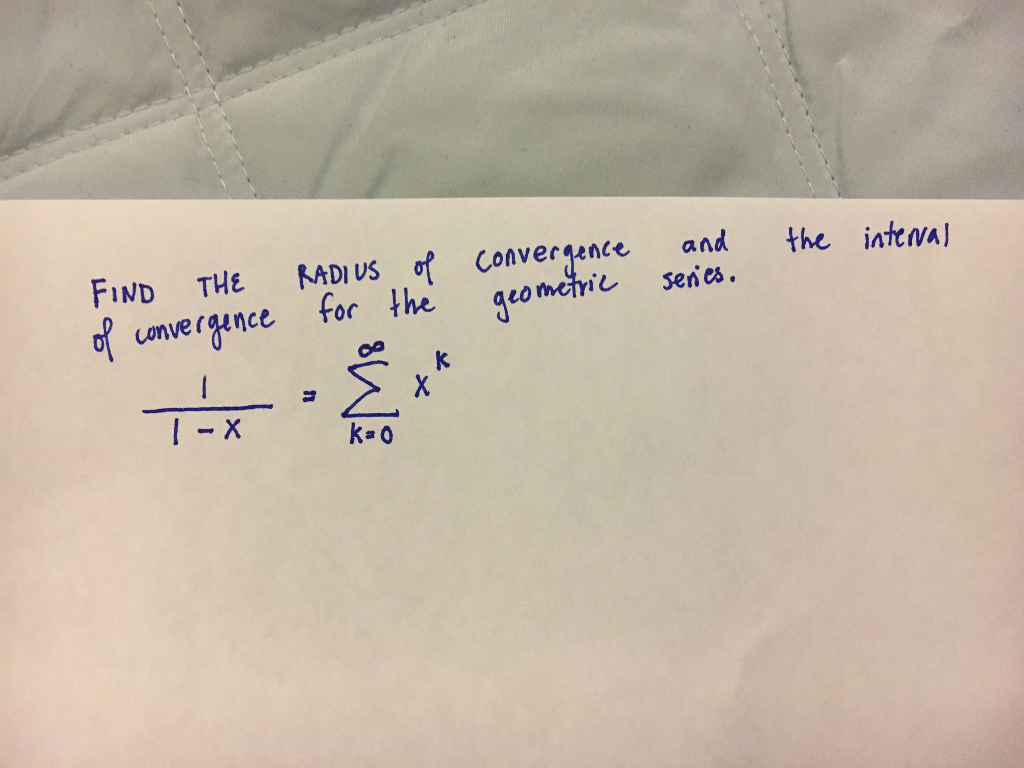 FIND THE RADIUS of convergence and the interval
of convergence for the geometric series.
1/(1-x) = ∑_{k=0}^{∞} x^k